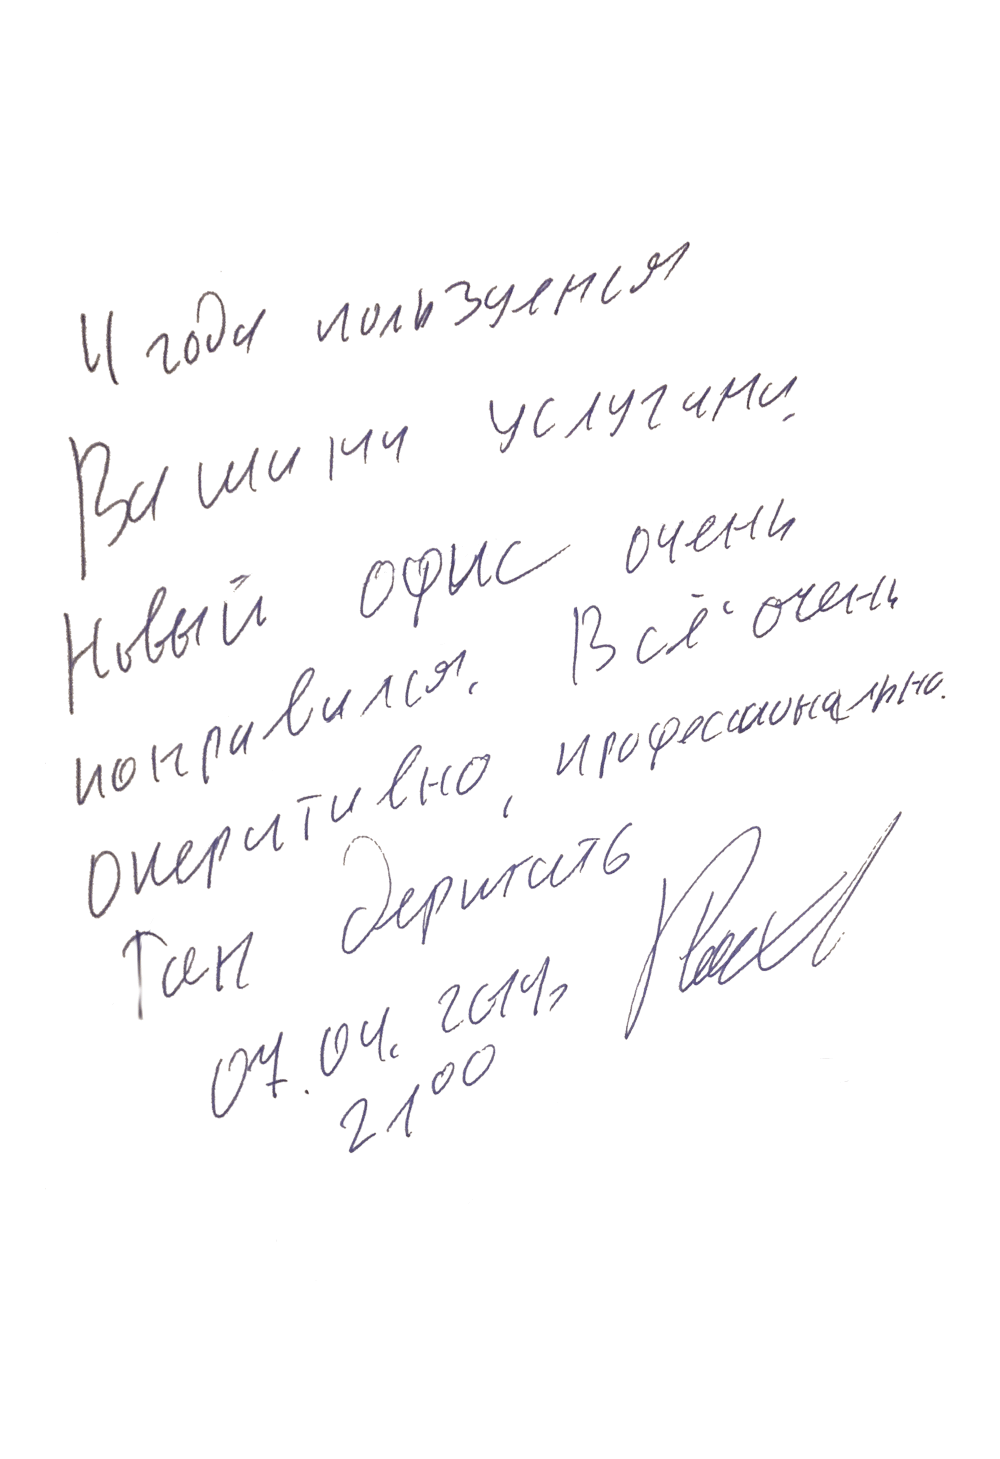 4 года пользуемся
Вашими услугами.
Новый офис очень
понравился. Всё очень
оперативно, профессионально.
Так держать
07.04.2014,
21⁰⁰